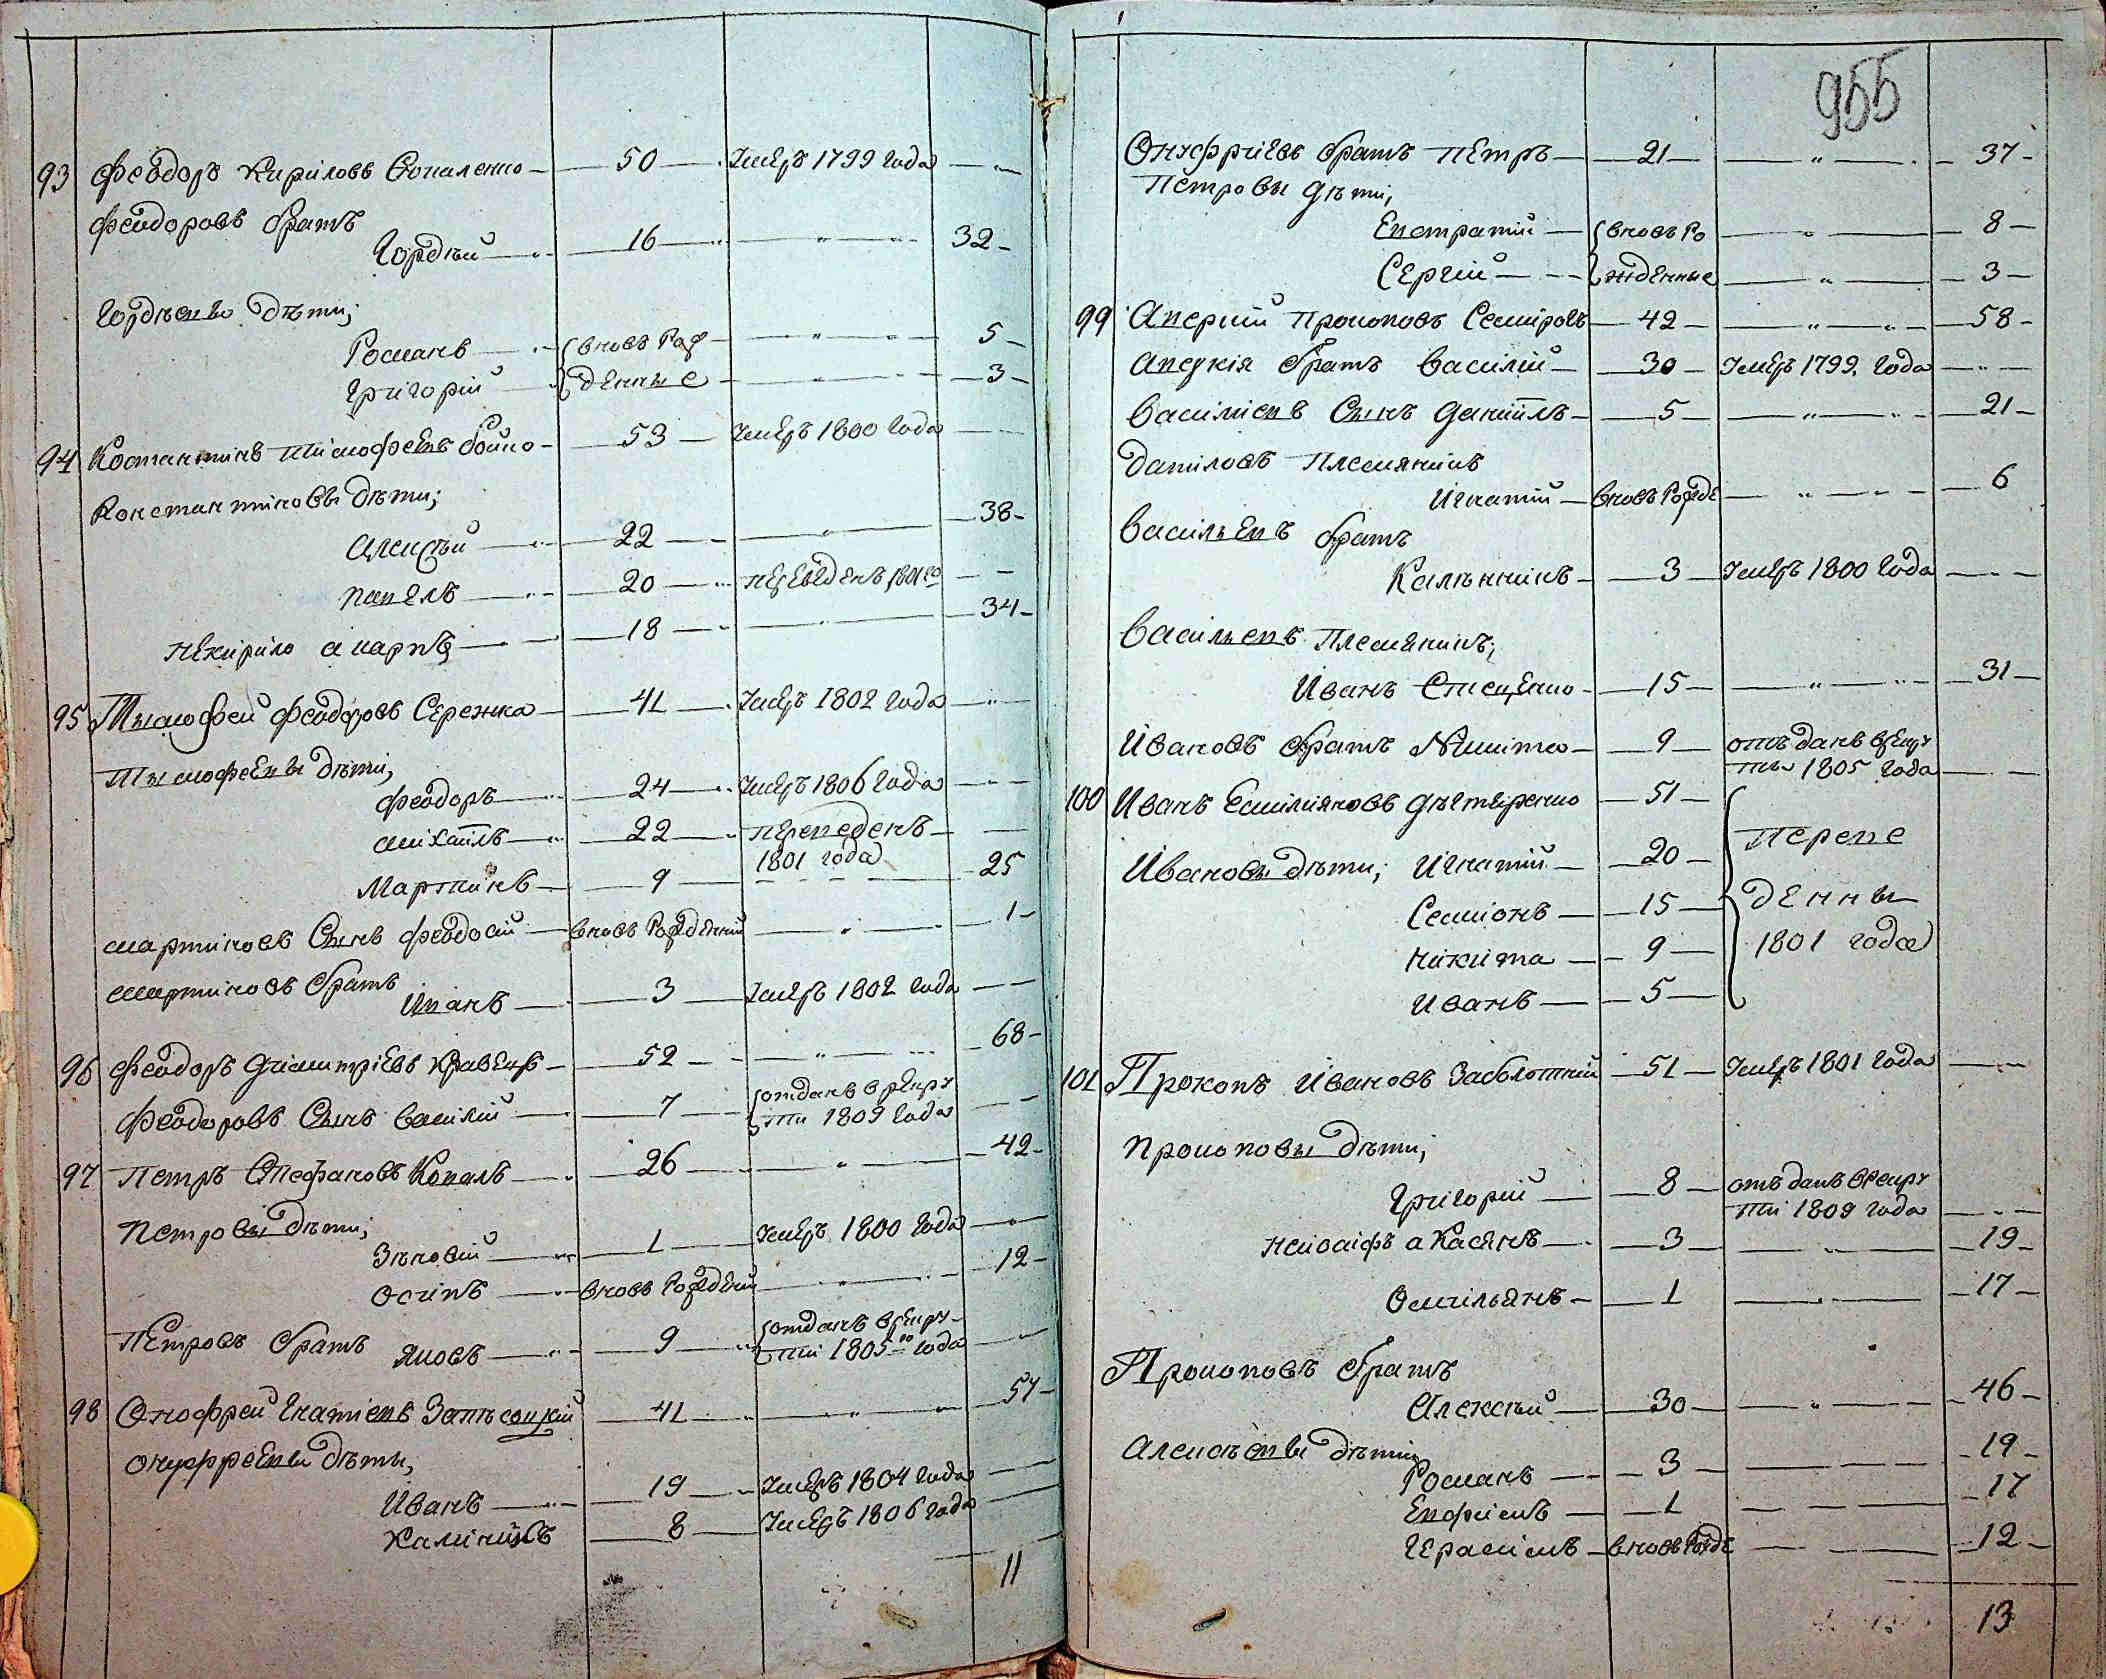 93 Феодоръ Кириловъ Коваленко 50 Умеръ 1799 года
Феодоровъ братъ
Гордѣй 16 " 32
Гордѣевы дѣти;
Романъ вновь рож " 5
Григорий денные " 3
94 Костантинъ Тимофеевъ Бойко 53 Умеръ 1800 года
Константиновы дѣти;
Алексѣй 22 " 38
Павелъ 20 переведенъ 1801го
Некирило а Карпъ 18 " 34
95 Тымофей Феодоровъ Сережка 41 Умеръ 1802 года
Тымофеевы дѣти,
Феодоръ 24 Умеръ 1806 года
Михаилъ 22 переведенъ
1801 года
Мартинъ 9 25
Мартиновъ Сынъ Феодосий вновь рожденний " 1
Мартиновъ братъ
Иванъ 3 Умеръ 1802 года
96 Феодоръ Димитріевъ Кравецъ 52 " 68
Феодоровъ Сынъ Василий 7 отданъ врекру
ти 1809 года
97 Петръ Стефановъ Коваль 26 " 42
Петровы дѣти;
Зѣновий 1 Умеръ 1800 года
Осипъ вновь рожденій " 12
Петровъ братъ Яковъ 9 отданъ врекру
ти 1805го года
98 Онофрей Игнатіевъ 41 " 57
Онуфреевы дѣты,
Иванъ 19 Умеръ 1804 года
Калиникъ 8 Умеръ 1806 года
11
955
Онуфріевъ братъ Петръ 21 " 37
Петровы дѣти,
Евстратий вновь ро " 8
Сергій жденные " 3
99 Прокоповъ 42 " 58
братъ Василій 30 Умеръ 1799 года
Василиевъ Сынъ Даниилъ 5 " 21
Даниловъ Племянникъ
Игнатий вновь рожде " 6
Васильевъ братъ
Калѣнникъ 3 Умеръ 1800 года
Васильевъ Племяникъ;
Иванъ Стеценко 15 " 31
Ивановъ братъ Никита 9 отъданъ врекру
ты 1805 года
100 Иванъ Емилияновъ Дѣхтяренко 51 Переве
Ивановы дѣти; Игнатий 20
Семионъ 15 денны
Никита 9 1801 года
Иванъ 5
101 Прокопъ Ивановъ Заболотний 51 Умеръ 1801 года
Прокоповы дѣти;
Григорий 8 отъданъ врекру
ти 1809 года
Неиосифъ а Касянъ 3 " 19
Омильянъ 1 " 17
Прокоповъ братъ
Алексѣй 30 " 46
Алексѣевы дѣти;
Романъ 3 19
Евфимъ 1 17
Герасимъ вновь рожде 12
13